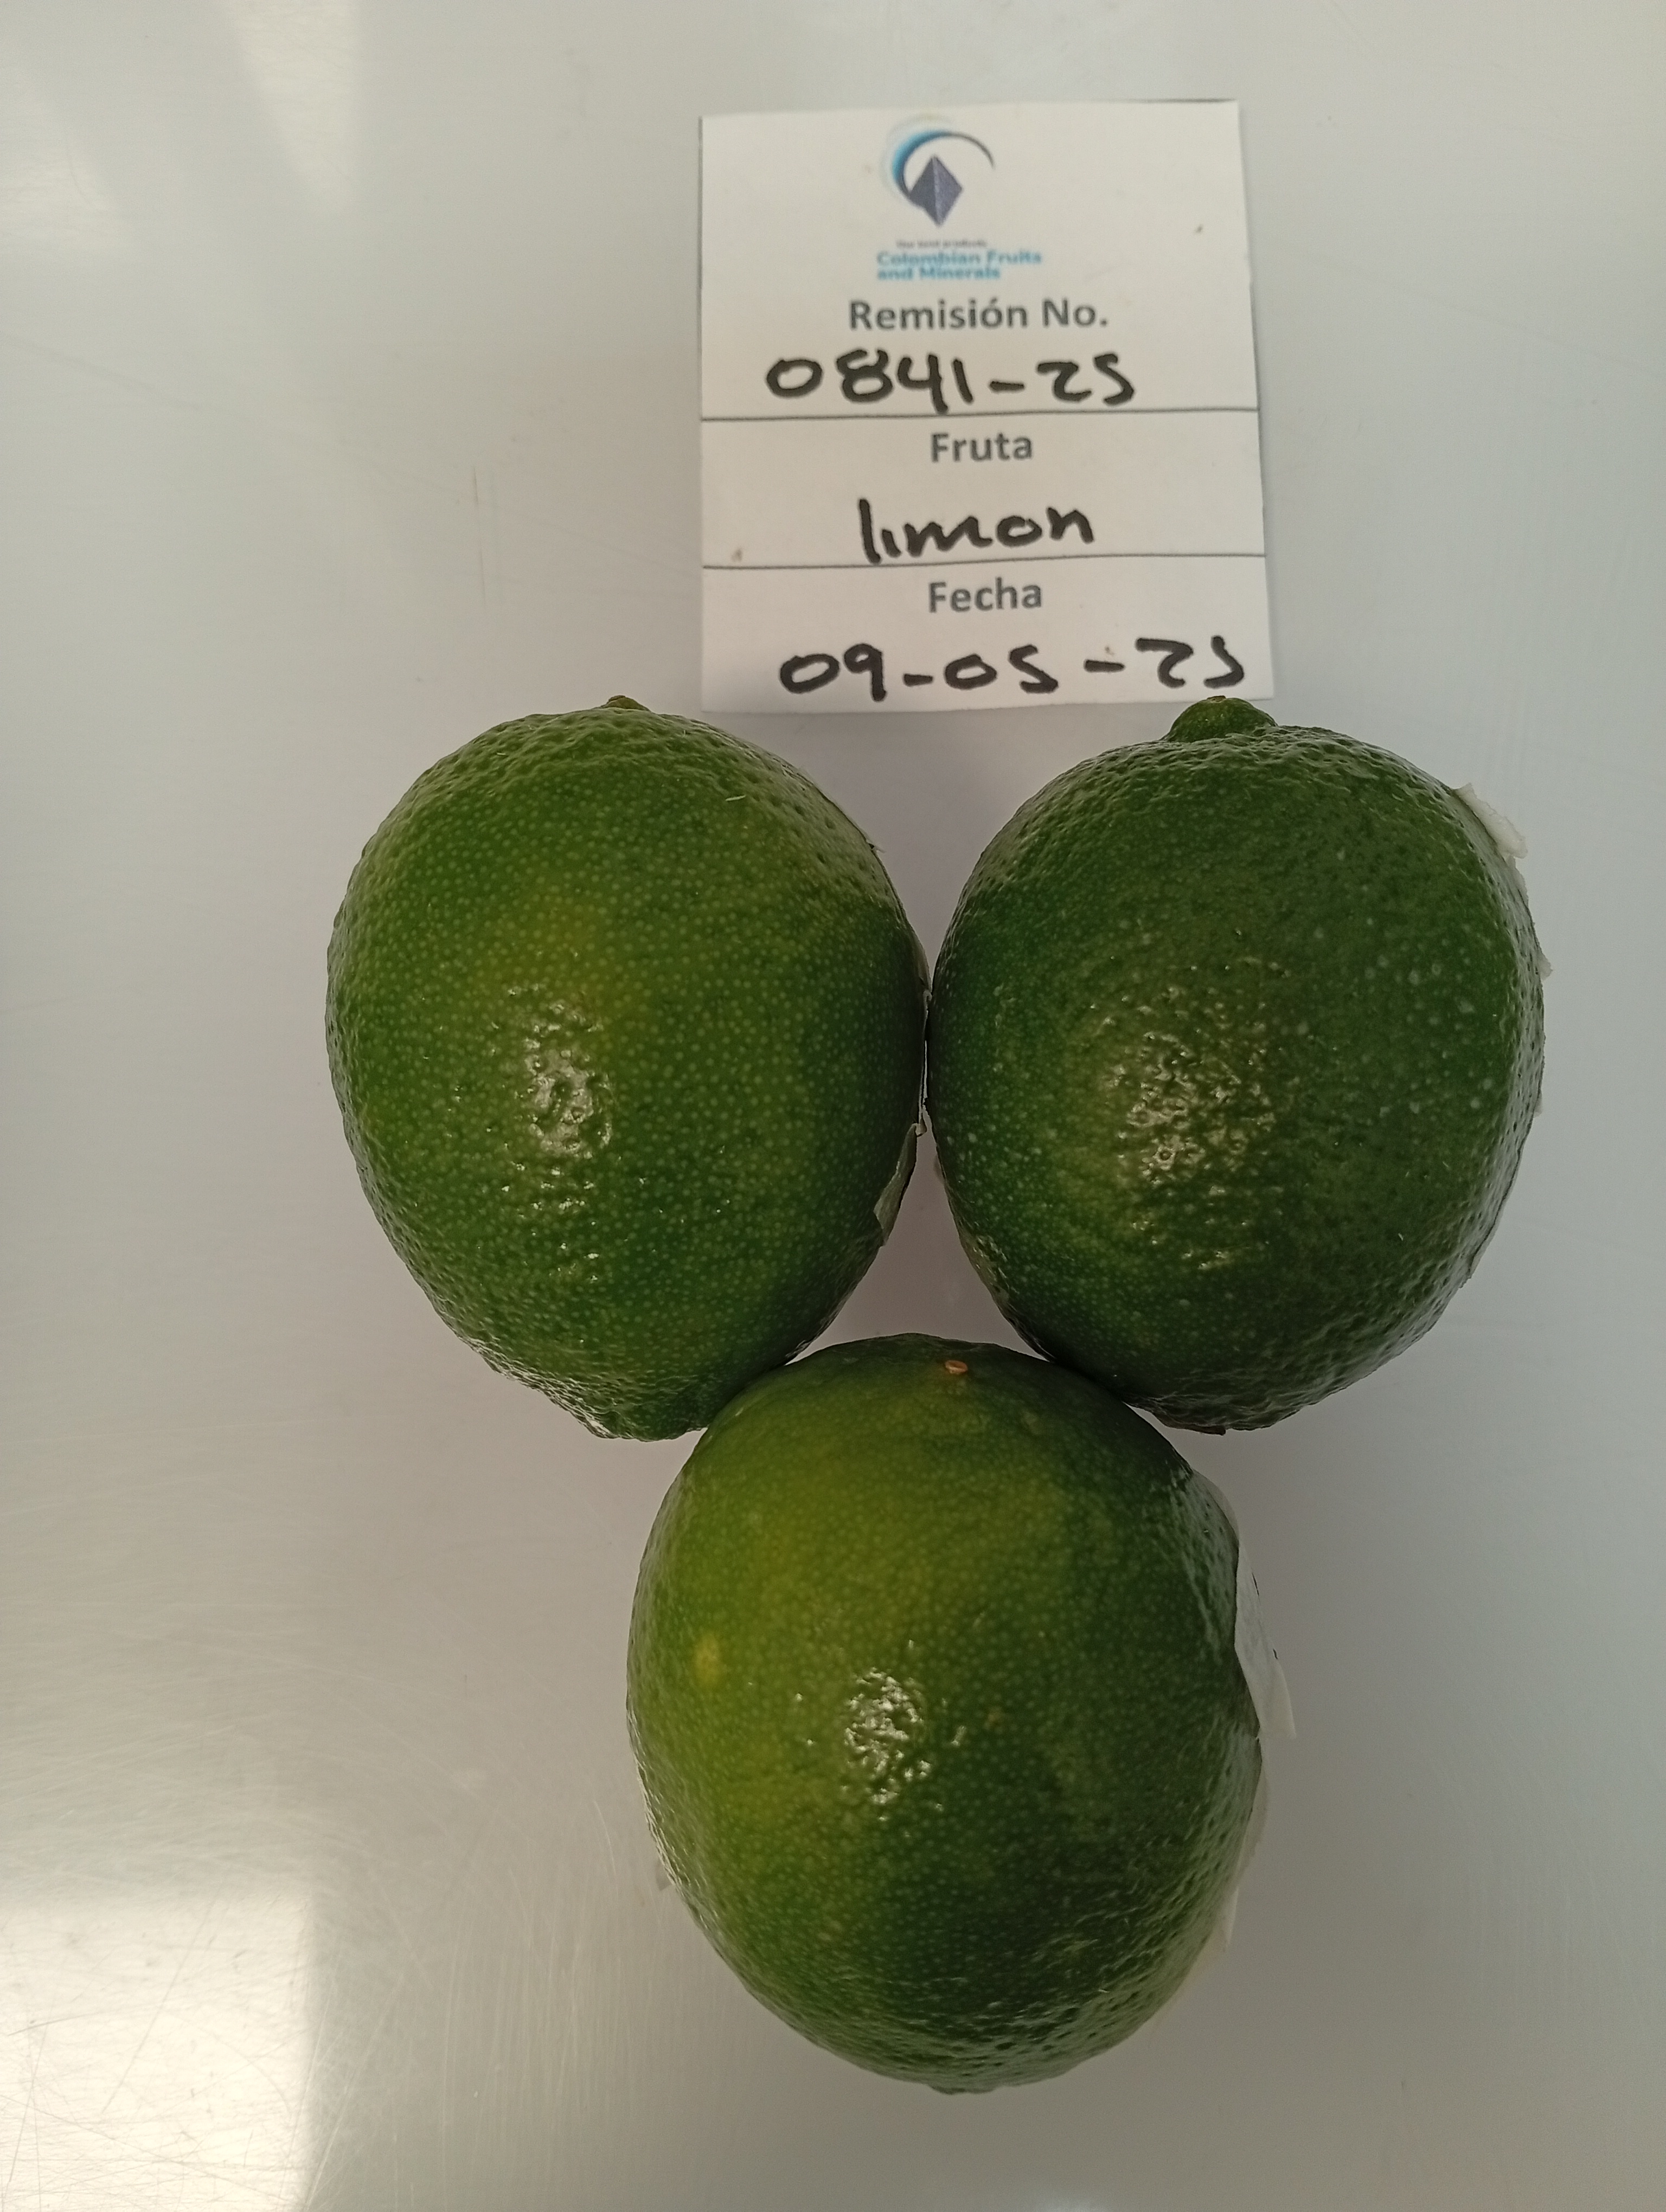 Our best products
Colombian Fruits
and Minerals
Remisión No.
0841-25
Fruta
limon
Fecha
09-05-25